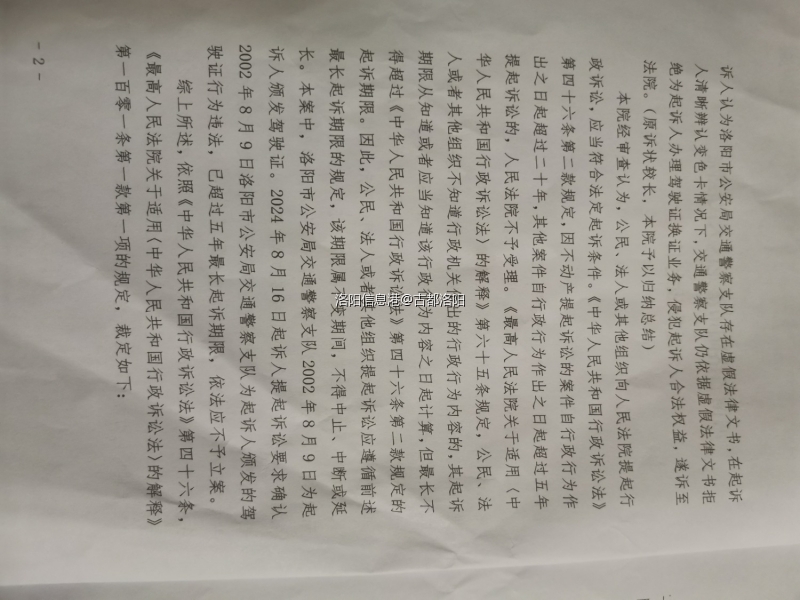 诉人认为洛阳市公安局交通警察支队存在虚假法律文书，在起诉
人清晰辨认变色卡情况下，交通警察支队仍依据虚假法律文书拒
绝为起诉人办理驾驶证换证业务，侵犯起诉人合法权益，遂诉至
法院。（原诉状较长，本院予以归纳总结）
本院经审查认为，公民、法人或其他组织向人民法院提起行
政诉讼，应当符合法定起诉条件。《中华人民共和国行政诉讼法》
第四十六条第二款规定，因不动产提起诉讼的案件自行政行为作
出之日起超过二十年，其他案件自行政行为作出之日起超过五年
提起诉讼的，人民法院不予受理。《最高人民法院关于适用〈中
华人民共和国行政诉讼法〉的解释》第六十五条规定，公民、法
人或者其他组织不知道行政机关作出的行政行为内容的，其起诉
期限从知道或者应当知道该行政行为内容之日起计算，但最长不
得超过《中华人民共和国行政诉讼法》第四十六条第二款规定的
起诉期限。因此，公民、法人或者其他组织提起诉讼应遵循前述
最长起诉期限的规定，该期限属不变期间，不得中止、中断或延
长。本案中，洛阳市公安局交通警察支队2002年8月9日为起
诉人颁发驾驶证。2024年8月16日起诉人提起诉讼要求确认
2002年8月9日洛阳市公安局交通警察支队为起诉人颁发的驾
驶证行为违法，已超过五年最长起诉期限，依法应不予立案。
综上所述，依照《中华人民共和国行政诉讼法》第四十六条，
《最高人民法院关于适用〈中华人民共和国行政诉讼法〉的解释》
第一百零一条第一款第一项的规定，裁定如下：
- 2 -
洛阳信息港@古都洛阳